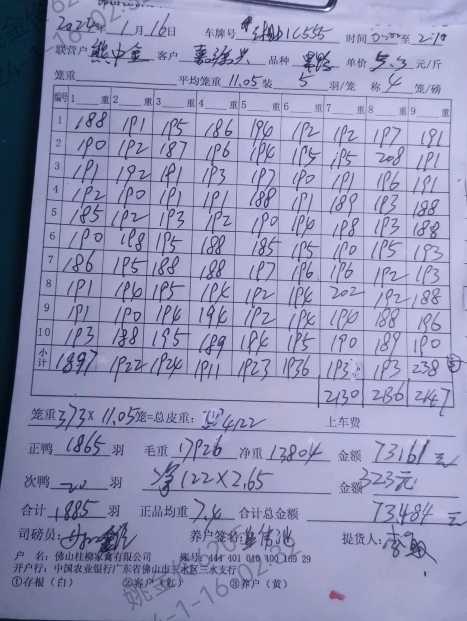 2024年 1月16日 车牌号 1C555 时间 至
联营户 熊中金 客户 品种 单价 5.3 元/斤
笼重 平均笼重 11.05 装 5 羽/笼 称 4 笼/磅
编号 1 重 2 重 3 重 4 重 5 重 6 重 7 重 8 重 9 重
1 188 191 195 186 196 192 192 197 191
2 190 192 187 196 194 195 195 208 191
3 191 192 191 193 197 190 191 196 191
4 192 190 191 191 188 191 189 193 188
5 185 192 193 192 190 194 198 193 188
6 190 198 195 188 185 195 190 195 193
7 186 195 188 188 197 196 196 192 193
8 191 194 195 194 192 194 202 192 188
9 191 190 194 194 192 194 194 188 196
10 193 188 195 189 194 195 190 189 190
小计 1897 1922 1924 1911 1923 1936 193 193 238
2130 2136 2147
笼重 373×11.05 笼=总皮重: 4122 上车费
正鸭 1865 羽 毛重 17926 净重 13804 金额 73161 元
次鸭 20 羽 122×2.65 金额 323元
合计 1885 羽 正品均重 7.4 合计总金额 73484 元
司磅员: 养户签名: 提货人:
户 名: 佛山桂柳家禽有限公司 账号: 444 401 010 400 165 29
开户行: 中国农业银行广东省佛山市三水区三水支行
①存根(白) ②客户(红) ③养户(黄)